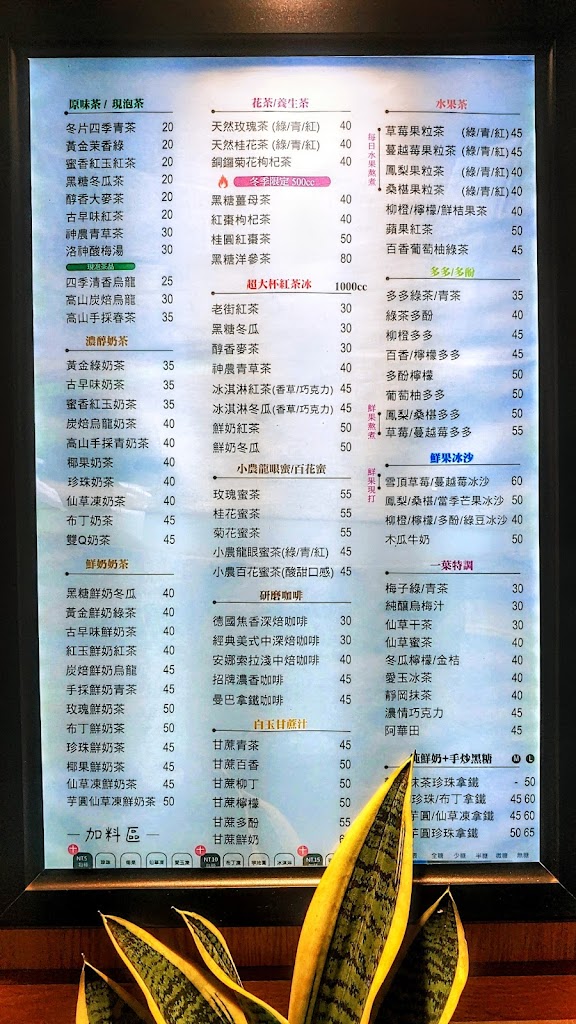 原味茶 / 現泡茶
冬片四季青茶 20
黃金茉香綠 20
蜜香紅玉紅茶 20
黑糖冬瓜茶 20
醇香大麥茶 20
古早味紅茶 20
神農青草茶 30
洛神酸梅湯 30
現泡茶品
四季清香烏龍 25
高山炭焙烏龍 30
高山手採春茶 35
濃醇奶茶
黃金綠奶茶 35
古早味奶茶 35
蜜香紅玉奶茶 35
炭焙烏龍奶茶 40
高山手採青奶茶 40
椰果奶茶 40
珍珠奶茶 40
仙草凍奶茶 40
布丁奶茶 45
雙Q奶茶 45
鮮奶奶茶
黑糖鮮奶冬瓜 40
黃金鮮奶綠茶 40
古早味鮮奶茶 40
紅玉鮮奶紅茶 40
炭焙鮮奶烏龍 45
手採鮮奶青茶 45
玫瑰鮮奶茶 50
布丁鮮奶茶 50
珍珠鮮奶茶 45
椰果鮮奶茶 45
仙草凍鮮奶茶 45
芋圓仙草凍鮮奶茶 50
加料區
花茶/養生茶
天然玫瑰茶 (綠/青/紅) 40
天然桂花茶 (綠/青/紅) 40
銅鑼菊花枸杞茶 40
冬季限定 500cc
黑糖薑母茶 40
紅棗枸杞茶 40
桂圓紅棗茶 50
黑糖洋參茶 80
超大杯紅茶冰 1000cc
老街紅茶 30
黑糖冬瓜 30
醇香麥茶 30
神農青草茶 40
冰淇淋紅茶(香草/巧克力) 45
冰淇淋冬瓜(香草/巧克力) 45
鮮奶紅茶 50
鮮奶冬瓜 50
小農龍眼蜜/百花蜜
玫瑰蜜茶 55
桂花蜜茶 55
菊花蜜茶 55
小農龍眼蜜茶(綠/青/紅) 45
小農百花蜜茶(酸甜口感) 45
研磨咖啡
德國焦香深焙咖啡 30
經典美式中深焙咖啡 30
安娜索拉淺中焙咖啡 40
招牌濃香咖啡 45
曼巴拿鐵咖啡 45
白玉甘蔗汁
甘蔗青茶 45
甘蔗百香 50
甘蔗柳丁 50
甘蔗檸檬 50
甘蔗多酚 55
甘蔗鮮奶
水果茶
每日水果熬煮
草莓果粒茶 (綠/青/紅) 45
蔓越莓果粒茶 (綠/青/紅) 40
鳳梨果粒茶 (綠/青/紅) 40
桑椹果粒茶 (綠/青/紅) 40
柳橙/檸檬/鮮桔果茶 40
蘋果紅茶 50
百香葡萄柚綠茶 45
多多/多酚
多多綠茶/青茶 35
綠茶多酚 40
柳橙多多 45
百香/檸檬多多 45
多酚檸檬 50
葡萄柚多多 50
鮮果熬煮
鳳梨/桑椹多多 50
草莓/蔓越莓多多 55
鮮果冰沙
鮮果現打
雪頂草莓/蔓越莓冰沙 60
鳳梨/桑椹/當季芒果冰沙 50
柳橙/檸檬/多酚/綠豆冰沙 40
木瓜牛奶 50
一葉特調
梅子綠/青茶 30
純釀烏梅汁 30
仙草干茶 30
仙草蜜茶 40
冬瓜檸檬/金桔 40
愛玉冰茶 40
靜岡抹茶 40
濃情巧克力 45
阿華田 45
純鮮奶+手炒黑糖 M L
抹茶珍珠拿鐵 - 50
珍珠/布丁拿鐵 45 60
芋圓/仙草凍拿鐵 45 60
芋圓珍珠拿鐵 50 65
NT.5
NT.10
布丁凍
NT.15
全糖 少糖 半糖 微糖 無糖